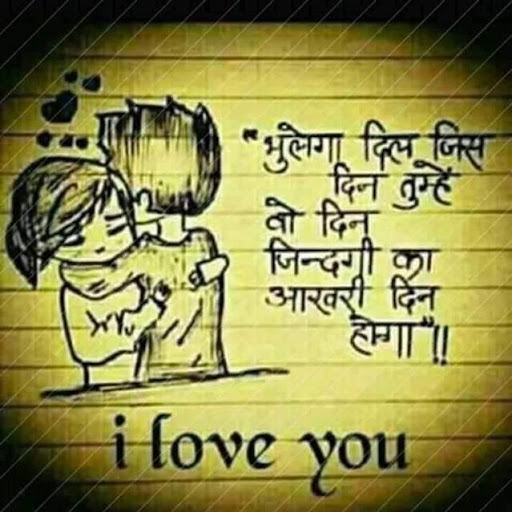 "भुलेगा दिल जिस
दिन तुम्हे
वो दिन
जिन्दगी का
आखरी दिन
होगा"!!
i love you